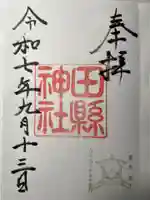 奉拝
田縣
神社
令和七年九月十三日